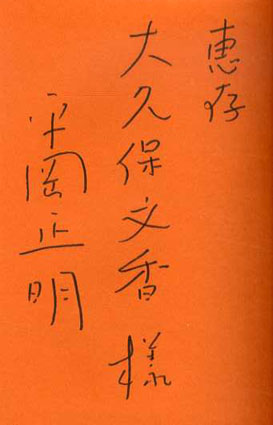 恵存
大久保文香様
平岡正明